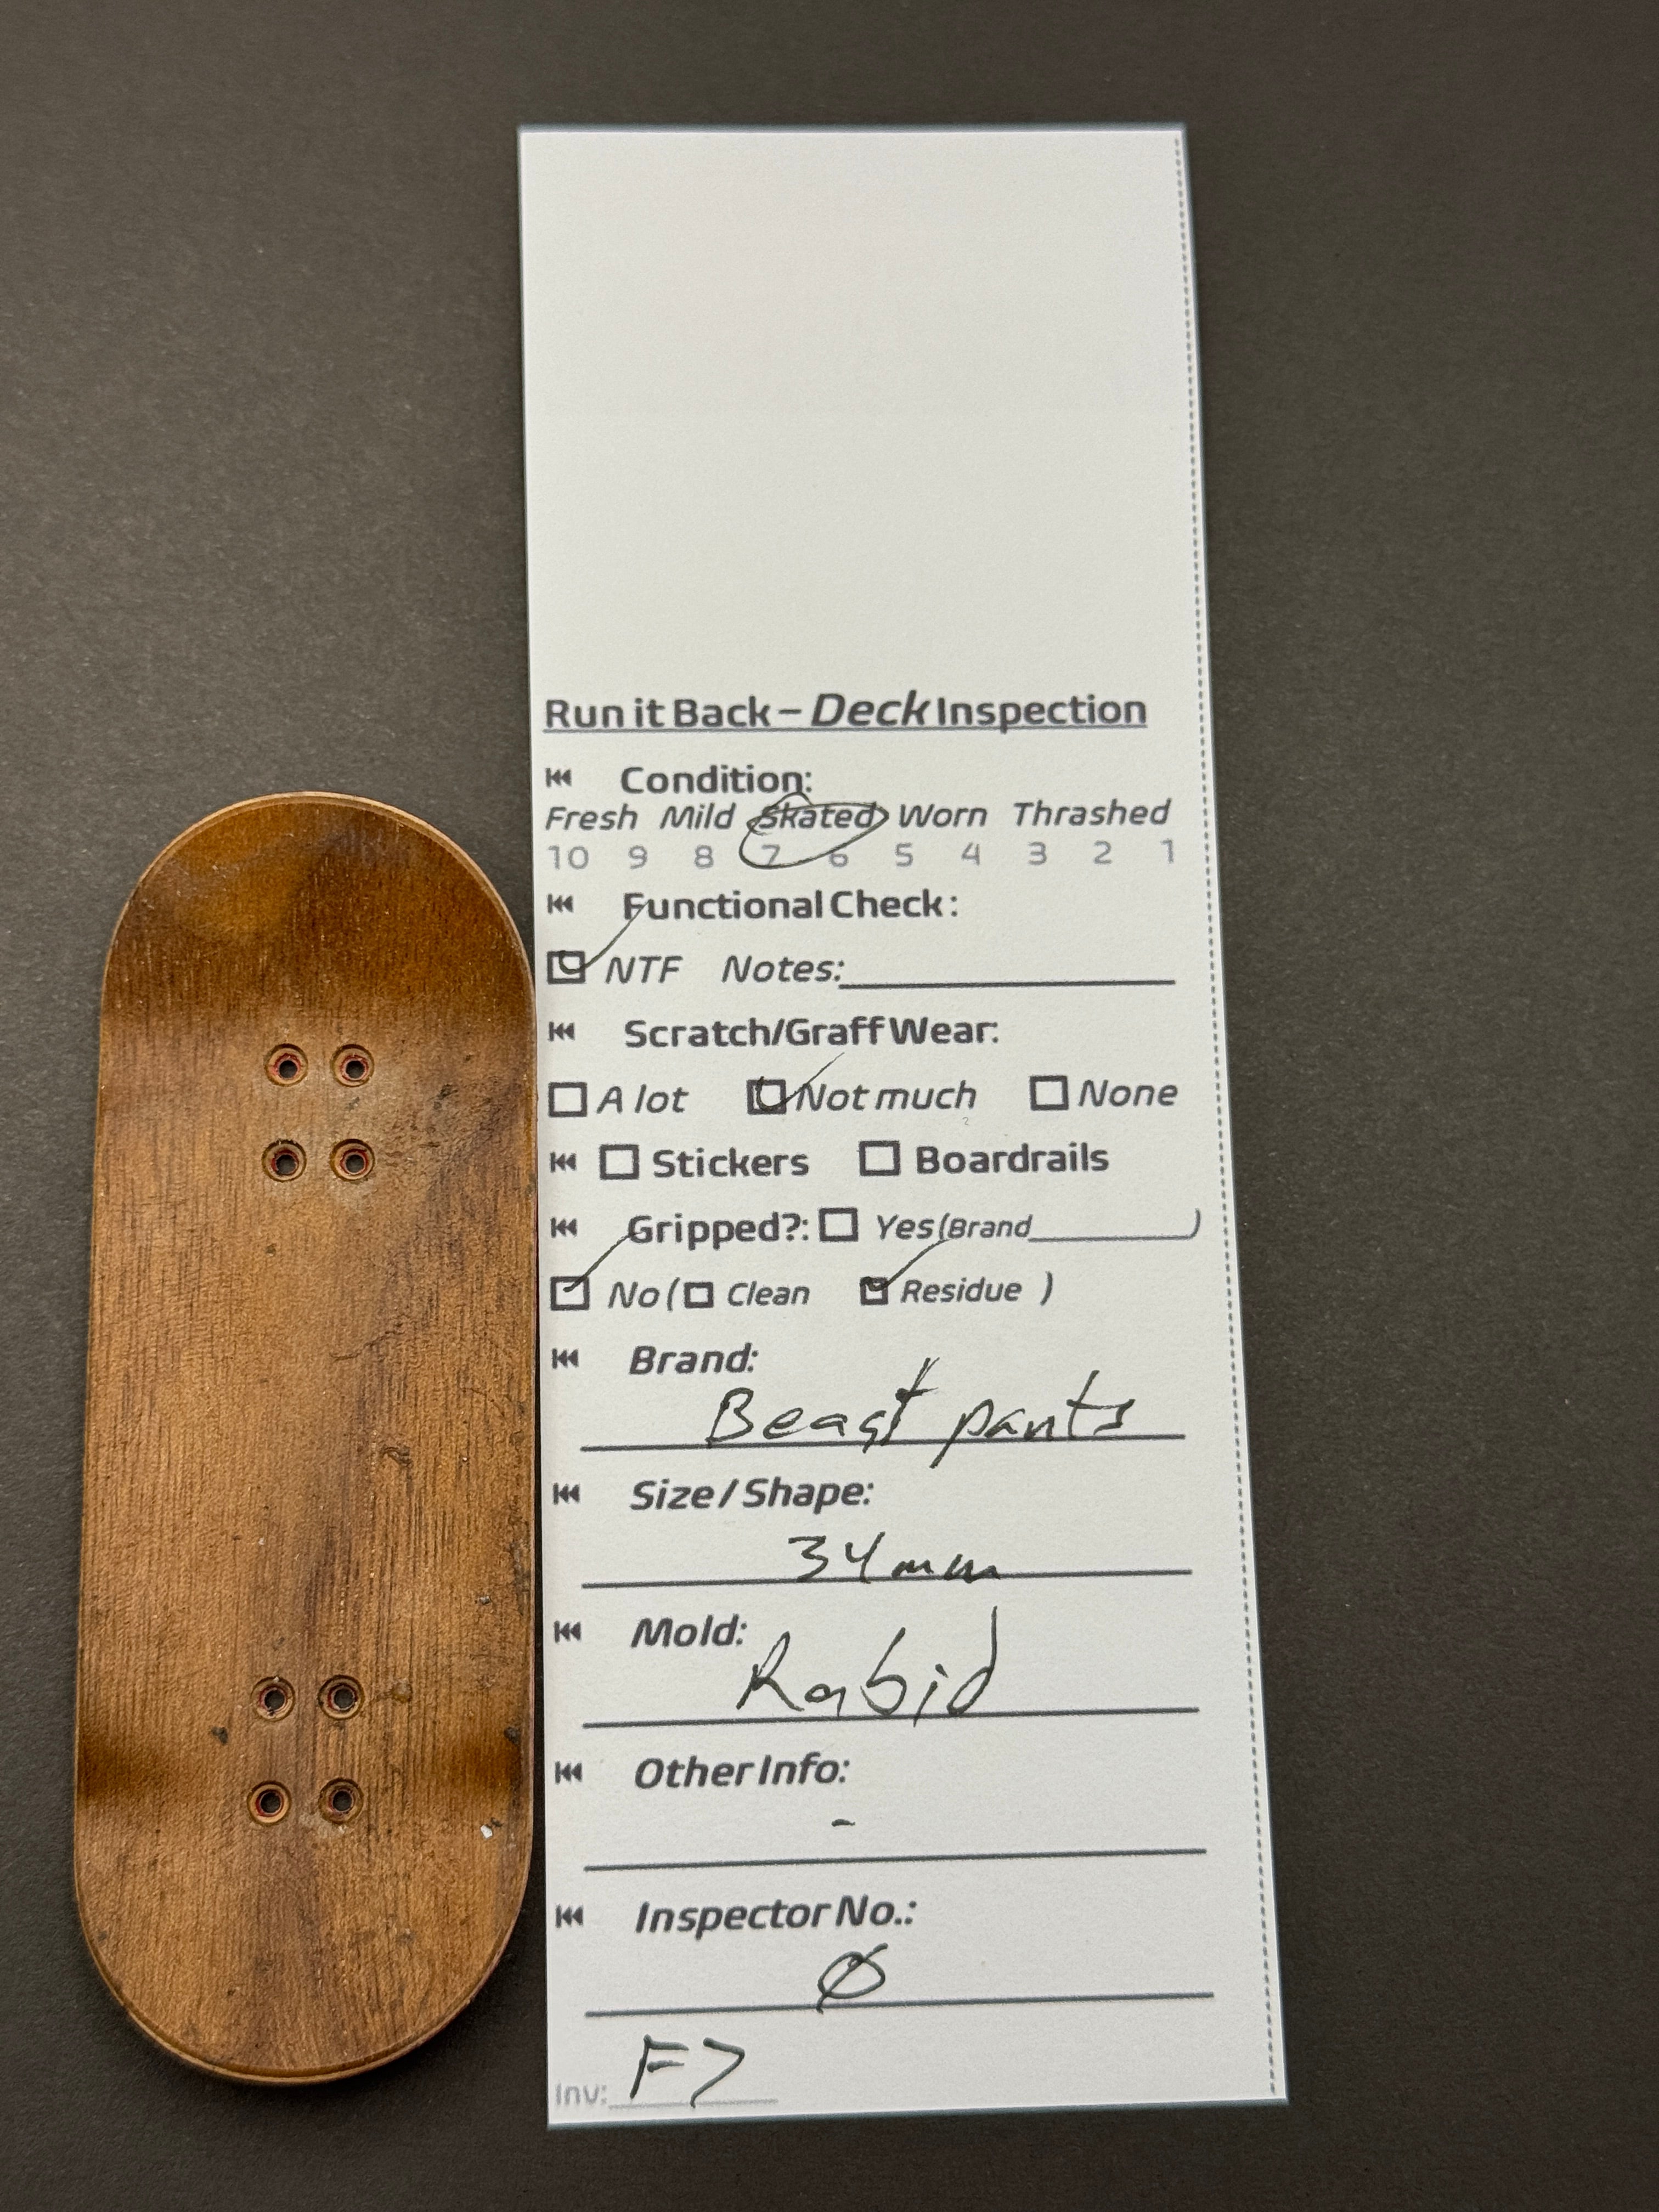 Run it Back – Deck Inspection
Condition:
Fresh Mild Skated Worn Thrashed
10 9 8 7 6 5 4 3 2 1
Functional Check:
NTF Notes:
Scratch/Graff Wear:
A lot Not much None
Stickers Boardrails
Gripped?: Yes (Brand )
No ( Clean Residue )
Brand:
Beast pants
Size / Shape:
34mm
Mold:
Rabid
Other Info:
-
Inspector No.:
Ø
Inv: F7